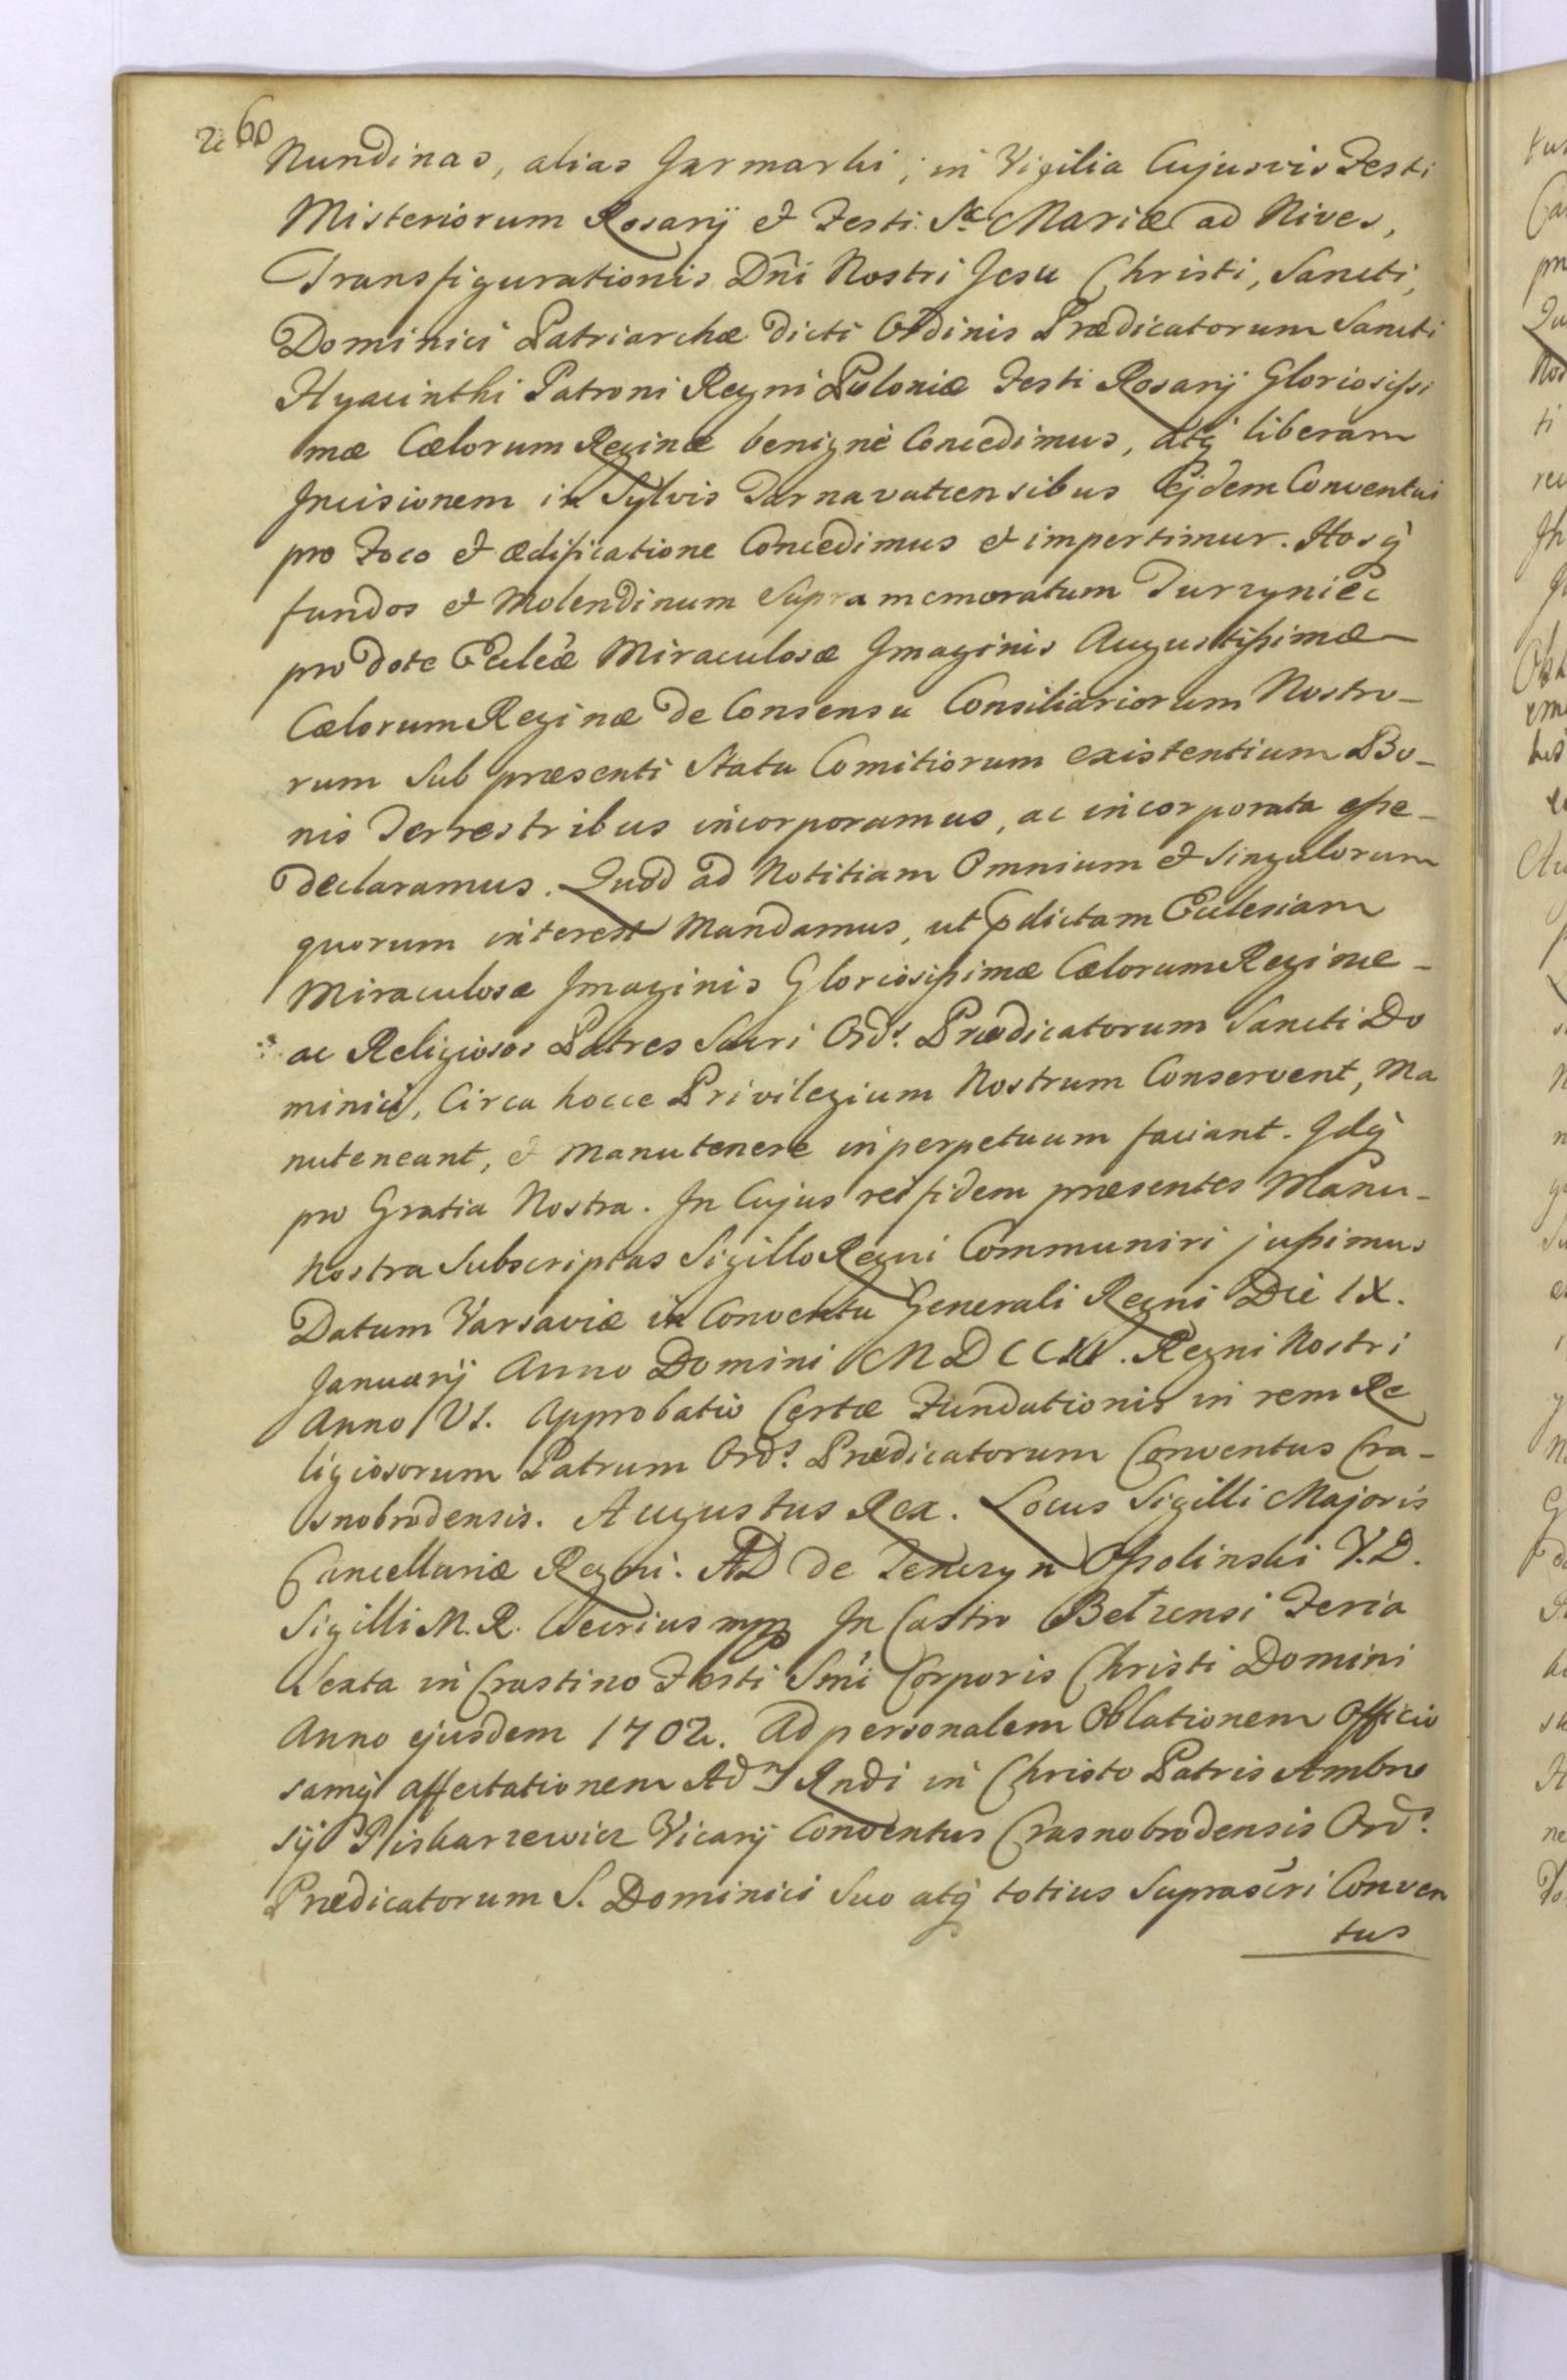 260
Nundinas, alias Jarmarki, in Vigilia Cujusvis Festi
Misteriorum Rosarÿ et Festi Sæ Mariæ ad Nives,
Transfigurationis Dñi Nostri Jesu Christi, Sancti,
Dominici Patriarchæ dicti Ordinis Prædicatorum Sancti
Hyacinthi Patroni Regni Poloniæ Festi Rosarÿ Gloriosissi
mæ Cælorum Reginæ benignè Concedimus, atq́ liberam
Incisionem in Sylvis Tarnavatiensibus Ejdem Conventui
pro Foco et ædificatione Concedimus et impertimur. Hosq́
fundos et Molendinum Supra memoratum Turzyniec
pro dote Eccleæ Miraculosæ Imaginis Augustissimæ
Cælorum Reginæ de Consensu Consiliariorum Nostro-
rum Sub præsenti Statu Comitiorum existentium Bo-
nis Terrestribus incorporamus, ac incorporata esse
declaramus. Quod ad Notitiam Omnium et Singulorum
quorum interest Mandamus, ut pdictam Ecclesiam
Miraculosæ Imaginis Gloriosissimæ Cælorum Reginæ -
ac Religiosos Patres Sacri Ords. Prædicatorum Sancti Do
minici, Circa hocce Privilegium Nostrum Conservent, Ma
nuteneant, et manutenere in perpetuum faciant. Idq́
pro Gratia Nostra. In Cujus rei fidem præsentes Manu-
Nostra Subscriptas Sigillo Regni Communiri jussimus
Datum Varsaviæ in Conventu Generali Regni Die IX.
Januarÿ Anno Domini MDCC. Regni Nostri
Anno VI. Approbatio Certæ Fundationis in rem Re
ligiosorum Patrum Ords. Prædicatorum Conventus Cra-
snobrodensis. Augustus Rex. Locus Sigilli Majoris
Cancellariæ Regni. AD de Tenczyn Ossolinski V.D.
Sigilli M.R. Secrius mpp In Castro Belzensi Feria
Sexta in Crastino Festi Smi Corporis Christi Domini
Anno ejusdem 1702. Ad personalem Oblationem Officio
samq́ affectationem Adm Rndi in Christo Patris Ambro
sÿ Pliskarzewicz Vicarÿ Conventus Crasnobrodensis Ords.
Prædicatorum S. Dominici Suo atq́ totius Suprascri Conven
tus